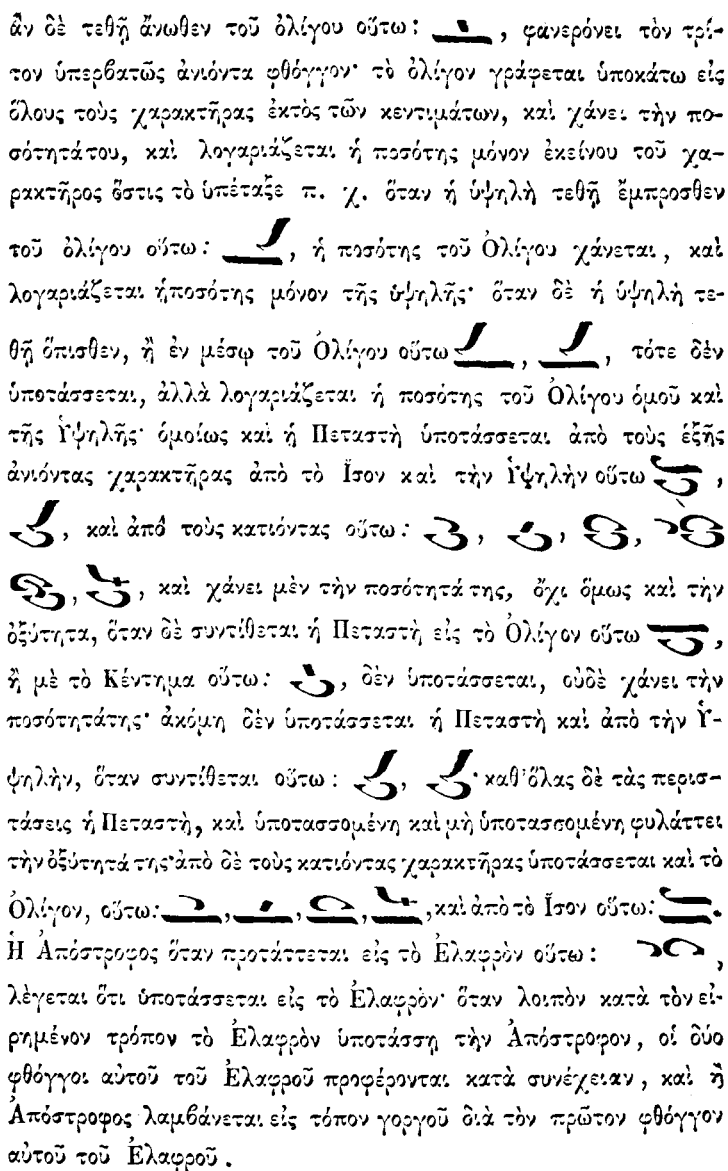 ἂν δὲ τεθῇ ἄνωθεν τοῦ ὀλίγου οὕτω: , φανερόνει τὸν τρί-
τον ὑπερβατῶς ἀνιόντα φθόγγον· τὸ ὀλίγον γράφεται ὑποκάτω εἰς
ὅλους τοὺς χαρακτῆρας ἐκτὸς τῶν κεντιμάτων, καὶ χάνει τὴν πο-
σότητάτου, καὶ λογαριάζεται ἡ ποσότης μόνον ἐκείνου τοῦ χα-
ρακτῆρος ὅστις τὸ ὑπέταξε π. χ. ὅταν ἡ ὑψηλὴ τεθῇ ἔμπροσθεν
τοῦ ὀλίγου οὕτω: , ἡ ποσότης τοῦ Ὀλίγου χάνεται, καὶ
λογαριάζεται ἡποσότης μόνον τῆς ὑψηλῆς· ὅταν δὲ ἡ ὑψηλὴ τε-
θῇ ὄπισθεν, ἢ ἐν μέσῳ τοῦ Ὀλίγου οὕτω , , τότε δὲν
ὑποτάσσεται, ἀλλὰ λογαριάζεται ἡ ποσότης τοῦ Ὀλίγου ὁμοῦ καὶ
τῆς Ὑψηλῆς· ὁμοίως καὶ ἡ Πεταστὴ ὑποτάσσεται ἀπὸ τοὺς ἑξῆς
ἀνιόντας χαρακτῆρας ἀπὸ τὸ Ἴσον καὶ τὴν Ὑψηλὴν οὕτω ,
, καὶ ἀπὸ τοὺς κατιόντας οὕτω: , , ,
, , καὶ χάνει μὲν τὴν ποσότητά της, ὄχι ὅμως καὶ τὴν
ὀξύτητα, ὅταν δὲ συντίθεται ἡ Πεταστὴ εἰς τὸ Ὀλίγον οὕτω ,
ἢ μὲ τὸ Κέντημα οὕτω: , δὲν ὑποτάσσεται, οὐδὲ χάνει τὴν
ποσότητάτης· ἀκόμη δὲν ὑποτάσσεται ἡ Πεταστὴ καὶ ἀπὸ τὴν Ὑ-
ψηλὴν, ὅταν συντίθεται οὕτω: , · καθ'ὅλας δὲ τὰς περισ-
τάσεις ἡ Πεταστὴ, καὶ ὑποτασσομένη καὶ μὴ ὑποτασσομένη φυλάττει
τὴν ὀξύτητά της·ἀπὸ δὲ τοὺς κατιόντας χαρακτῆρας ὑποτάσσεται καὶ τὸ
Ὀλίγον, οὕτω: , , , ,καὶ ἀπὸ τὸ Ἴσον οὕτω: .
Ἡ Ἀπόστροφος ὅταν προτάττεται εἰς τὸ Ἐλαφρὸν οὕτω: ,
λέγεται ὅτι ὑποτάσσεται εἰς τὸ Ἐλαφρὸν· ὅταν λοιπὸν κατὰ τὸν εἰ-
ρημένον τρόπον τὸ Ἐλαφρὸν ὑποτάσσῃ τὴν Ἀπόστροφον, οἱ δύο
φθόγγοι αὐτοῦ τοῦ Ἐλαφροῦ προφέρονται κατὰ συνέχειαν, καὶ ἡ
Ἀπόστροφος λαμβάνεται εἰς τόπον γοργοῦ διὰ τὸν πρῶτον φθόγγον
αὐτοῦ τοῦ Ἐλαφροῦ.